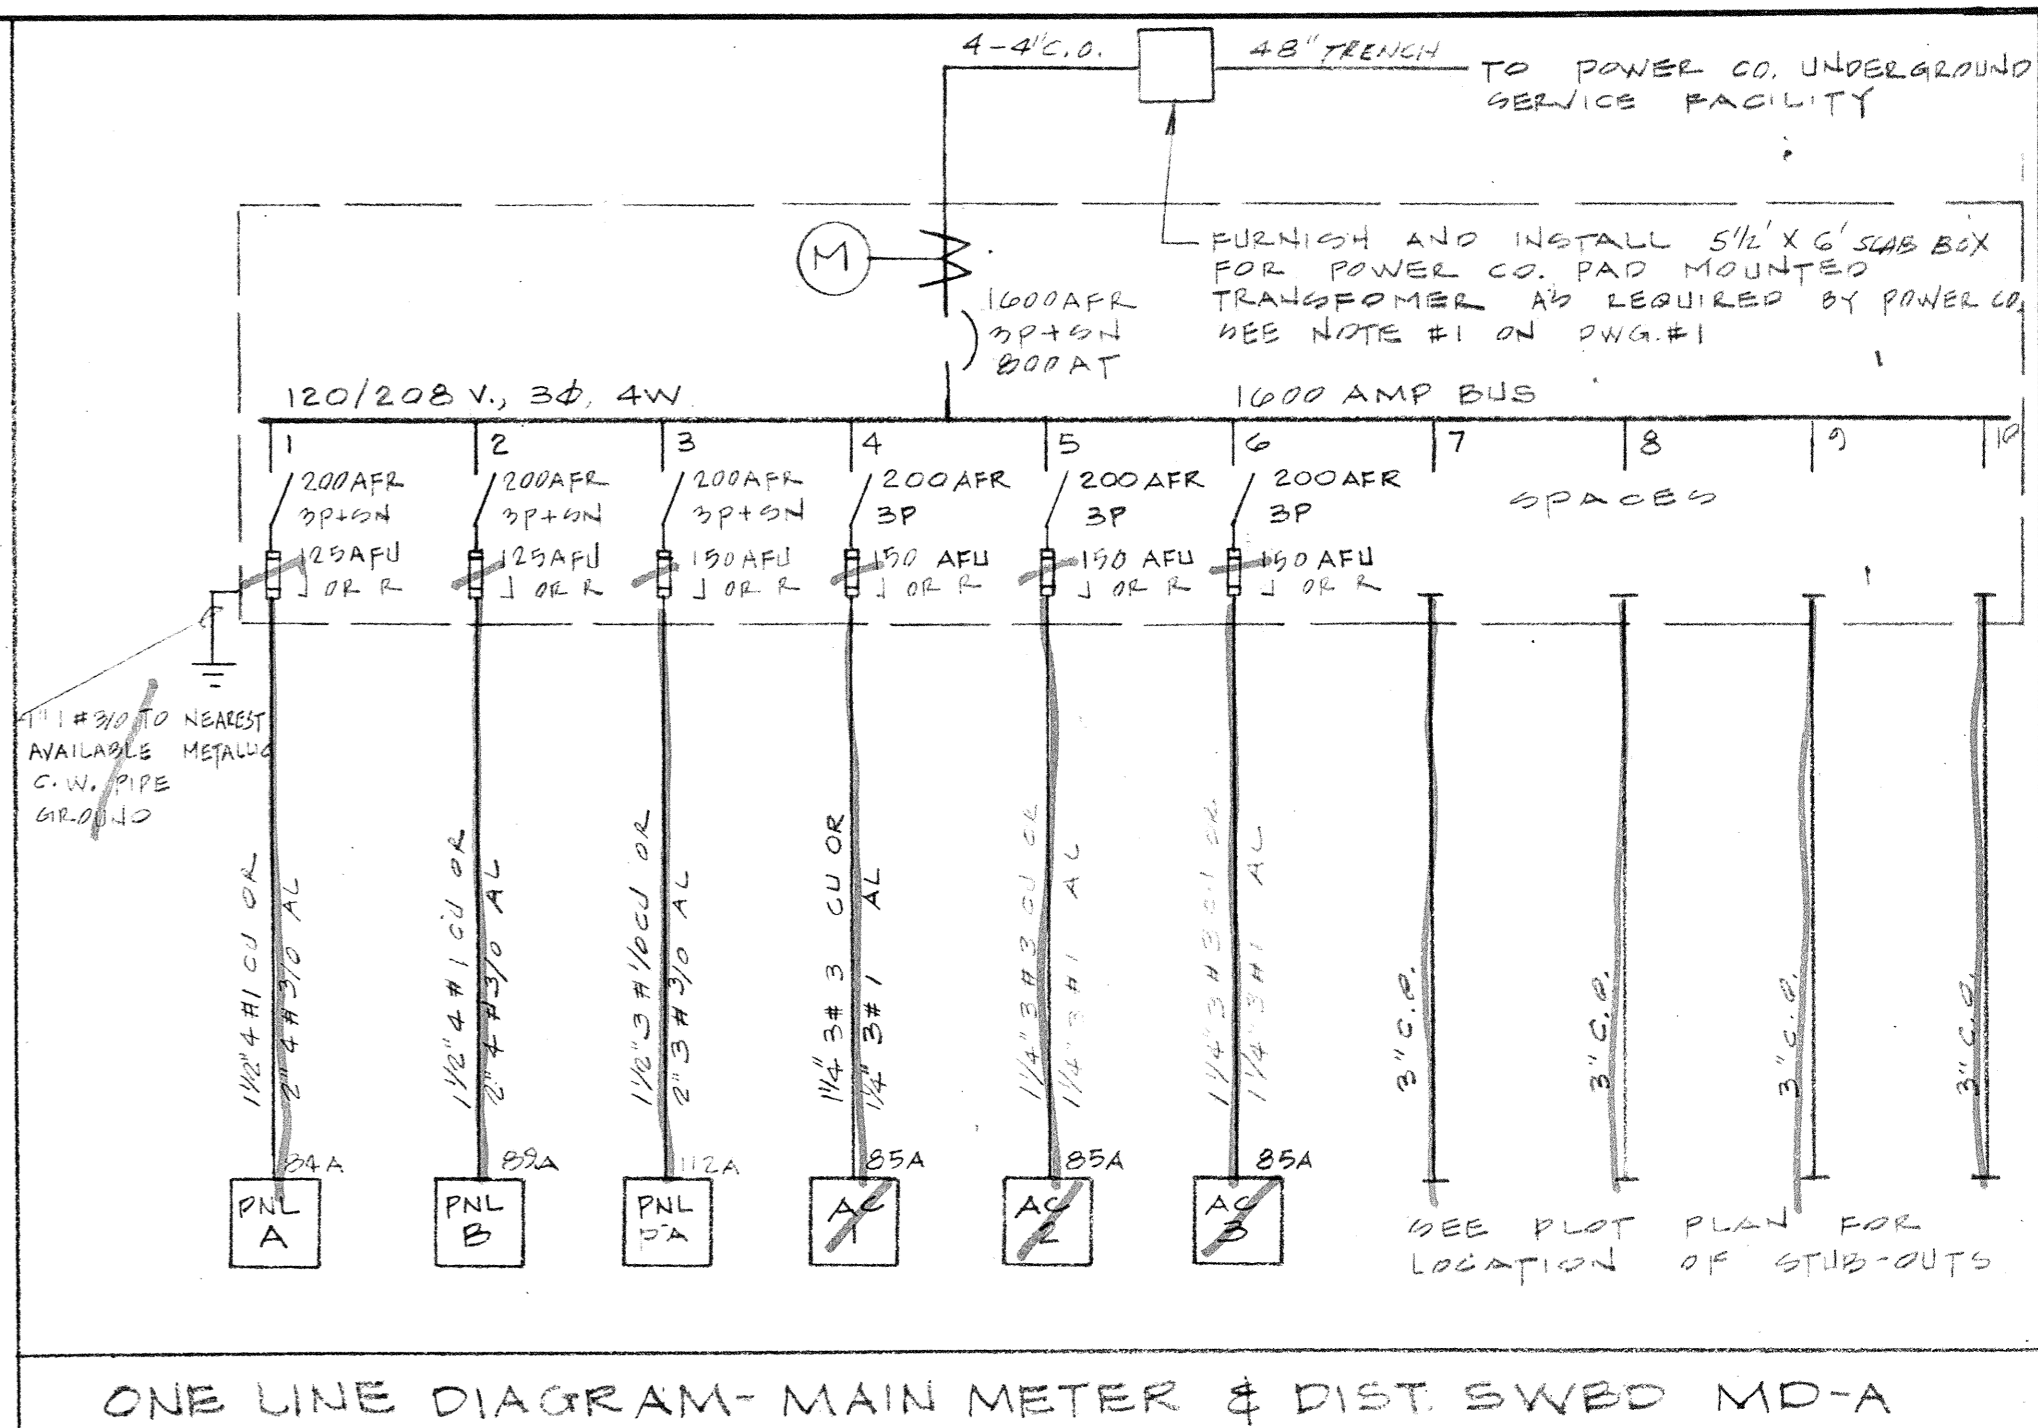 4-4"C.O.
48" TRENCH
TO POWER CO. UNDERGROUND
SERVICE FACILITY
M
FURNISH AND INSTALL 5½' X 6' SLAB BOX
FOR POWER CO. PAD MOUNTED
TRANSFOMER AS REQUIRED BY POWER CO.
SEE NOTE #1 ON DWG.#1
1600AFR
3P+SN
800AT
120/208 V., 3Ø, 4W
1600 AMP BUS
1
2
3
4
5
6
7
8
9
10
200AFR
3P+SN
125AFU
J OR R
200AFR
3P+SN
125AFU
J OR R
200AFR
3P+SN
150AFU
J OR R
200AFR
3P
150 AFU
J OR R
200AFR
3P
150 AFU
J OR R
200AFR
3P
150 AFU
J OR R
SPACES
1" 1 #3/0 TO NEAREST
AVAILABLE METALLIC
C.W. PIPE
GROUND
1½" 4 #1 CU OR
2" 4 #3/0 AL
1½" 4 #1 CU OR
2" 4 #3/0 AL
1½" 3 #1/0 CU OR
2" 3 #3/0 AL
1¼" 3#3 CU OR
1¼" 3#1 AL
1¼" 3 #3 CU OR
1¼" 3 #1 AL
1¼" 3 #3 CU OR
1¼" 3 #1 AL
3" C.O.
3" C.O.
3" C.O.
3" C.O.
84A
89A
112A
85A
85A
85A
PNL
A
PNL
B
PNL
PA
AC
1
AC
2
AC
3
SEE PLOT PLAN FOR
LOCATION OF STUB-OUTS
ONE LINE DIAGRAM- MAIN METER & DIST. SWBD MD-A